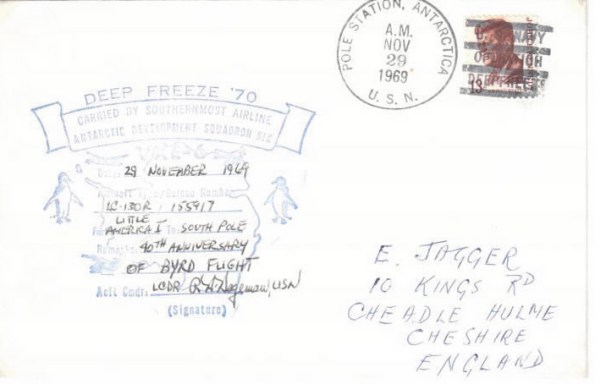 POLE STATION, ANTARCTICA
A.M.
NOV
29
1969
U. S. N.
U.S. NAVY
OPL BRANCH
DEEP FREEZE
13¢
DEEP FREEZE '70
CARRIED BY SOUTHERNMOST AIRLINE
ANTARCTIC DEVELOPMENT SQUADRON SIX
VXE-6
Date: 29 NOVEMBER 1969
LC-130R 155917
LITTLE
AMERICA I To: SOUTH POLE
Remarks: 40TH ANNIVERSARY
OF BYRD FLIGHT
Acft Cmdr: LCDR USN
(Signature)
E. JAGGER
10 KINGS RD
CHEADLE HULME
CHESHIRE
ENGLAND